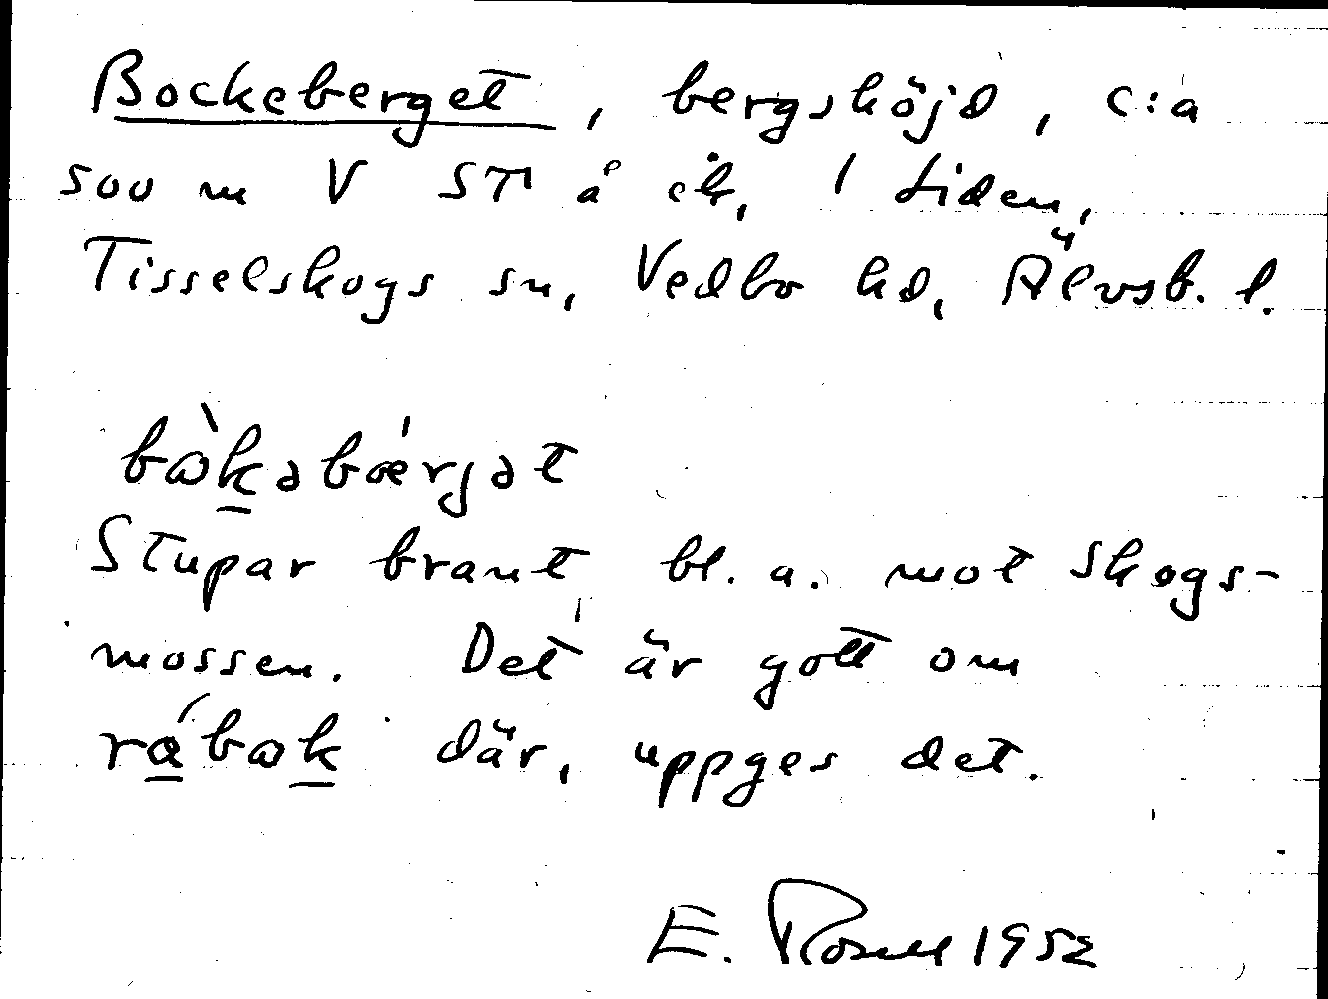 Bockeberget, bergshöjd, c:a
500 m V ST å ek, 1 Liden,
Tisselskogs sn, Vedbo hd, Älvsb. l.
bɷ̀kəbǽrjət
Stupar brant bl. a. mot Skogs-
mossen. Det är gott om
rábɷk där, uppges det.
E. Rosell 1952